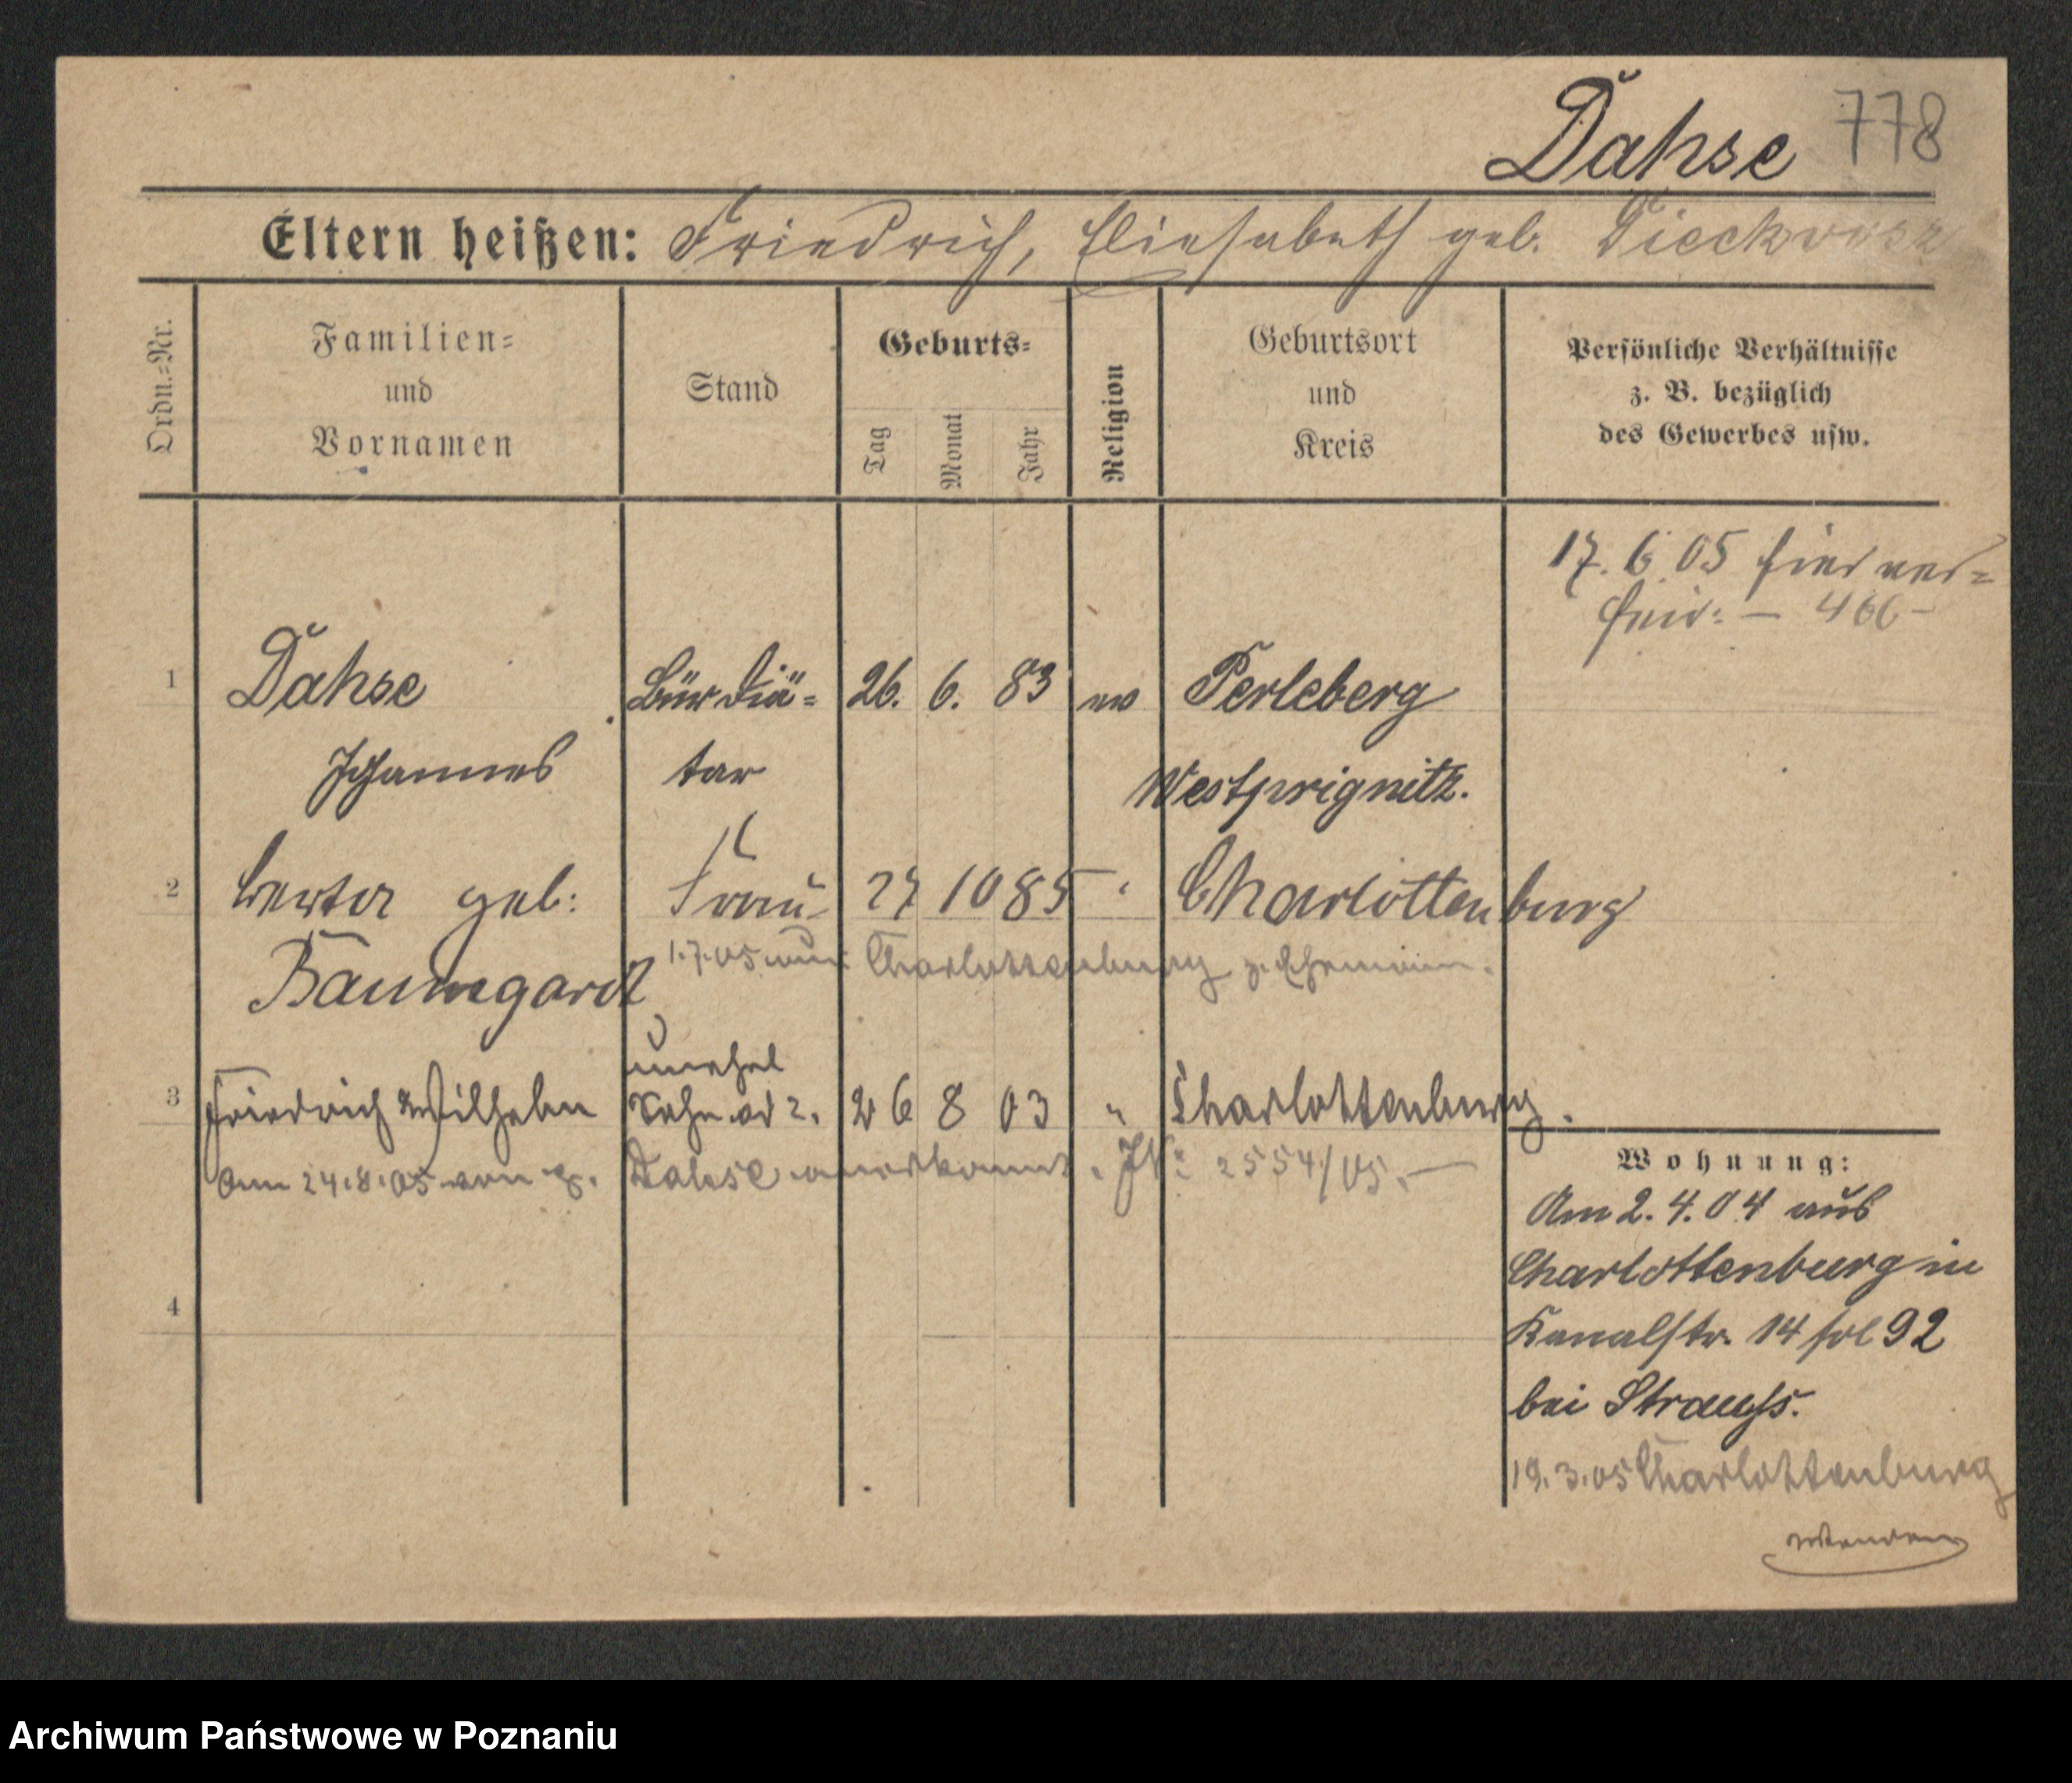 Dahse 778
Eltern heißen: Friedrich, Eliesabeth geb. Dieckvosz
Ordn.=Nr.
Familien=
und
Vornamen
Stand
Geburts=
Tag
Monat
Jahr
Religion
Geburtsort
und
Kreis
Persönliche Verhältnisse
z. B. bezüglich
des Gewerbes usw.
17. 6. 05 hier ver=
heir: –
1 Dahse Bürdiä= 26. 6. 83 ev Perleberg
Johannes tar Westprignitz.
2 geb: Frau 27 10 85 " Charlottenburg
Baumgardt 1.7.05 aus Charlottenburg z. Ehemann.
unehel
3 Friedrich Wilhelm Sohn ad 2. 26 8 03 " Charlottenburg.
Am 24.8.05 von Dahse anerkannt. J№ 2554/05. –
4
Wohnung:
Am 2. 4. 04 aus
Charlottenburg in
Kanalstr. 14 fol 92
bei Strauss.
19. 3. 05 Charlottenburg